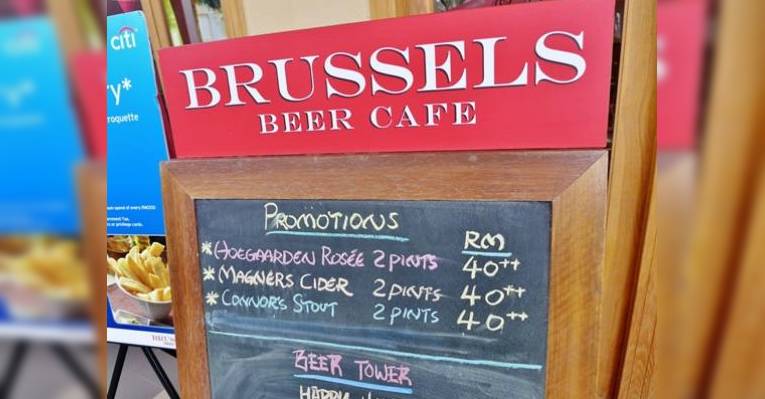 citi
y*
roquette
BRUSSELS
BEER CAFE
PROMOTIONS RM
*HOEGAARDEN ROSÉE 2 PINTS 40++
*MAGNERS CIDER 2 PINTS 40++
*CONNOR'S STOUT 2 PINTS 40++
BEER TOWER
HAPPY